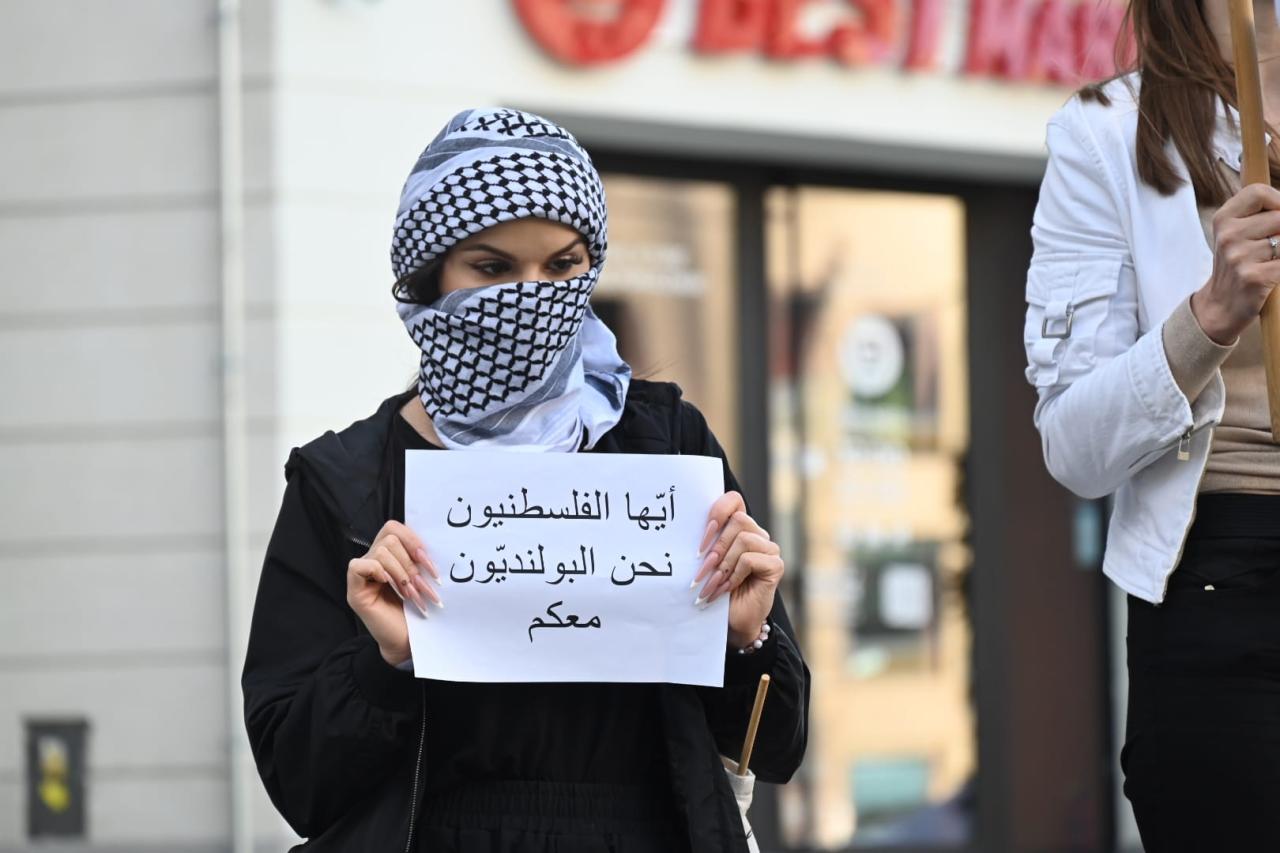 BEST
أيّها الفلسطنيون
نحن البولنديّون
معكم